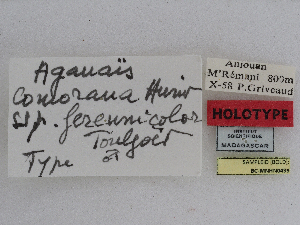 Aganaïs
Comorana
ssp. fereunicolor
Toulgoët
Type ♂
Anjouan
M'Rémani 800m
X-58 P. Griveaud
HOLOTYPE
INSTITUT
SCIENTIFIQUE
MADAGASCAR
SAMPLE ID (BOLD):
BC-MNHN0439